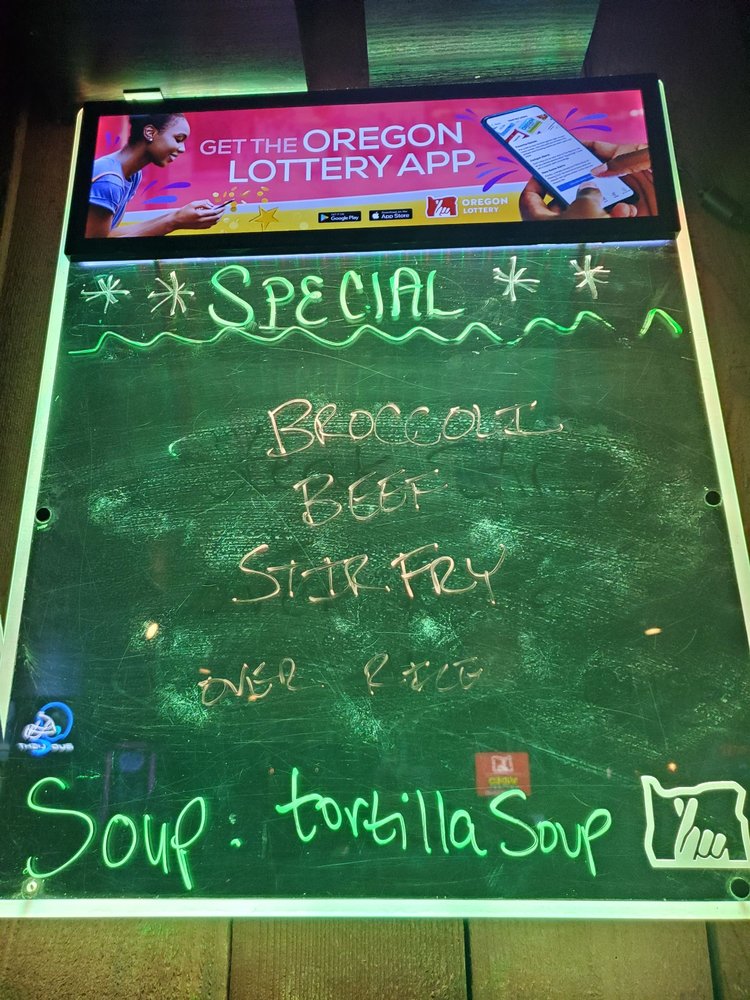 GET THE OREGON
LOTTERY APP
GET IT ON
Google Play
Download on the
App Store
OREGON
LOTTERY
** SPECIAL **
BROCCOLI
BEEF
STIR FRY
OVER RICE
Soup: tortilla Soup